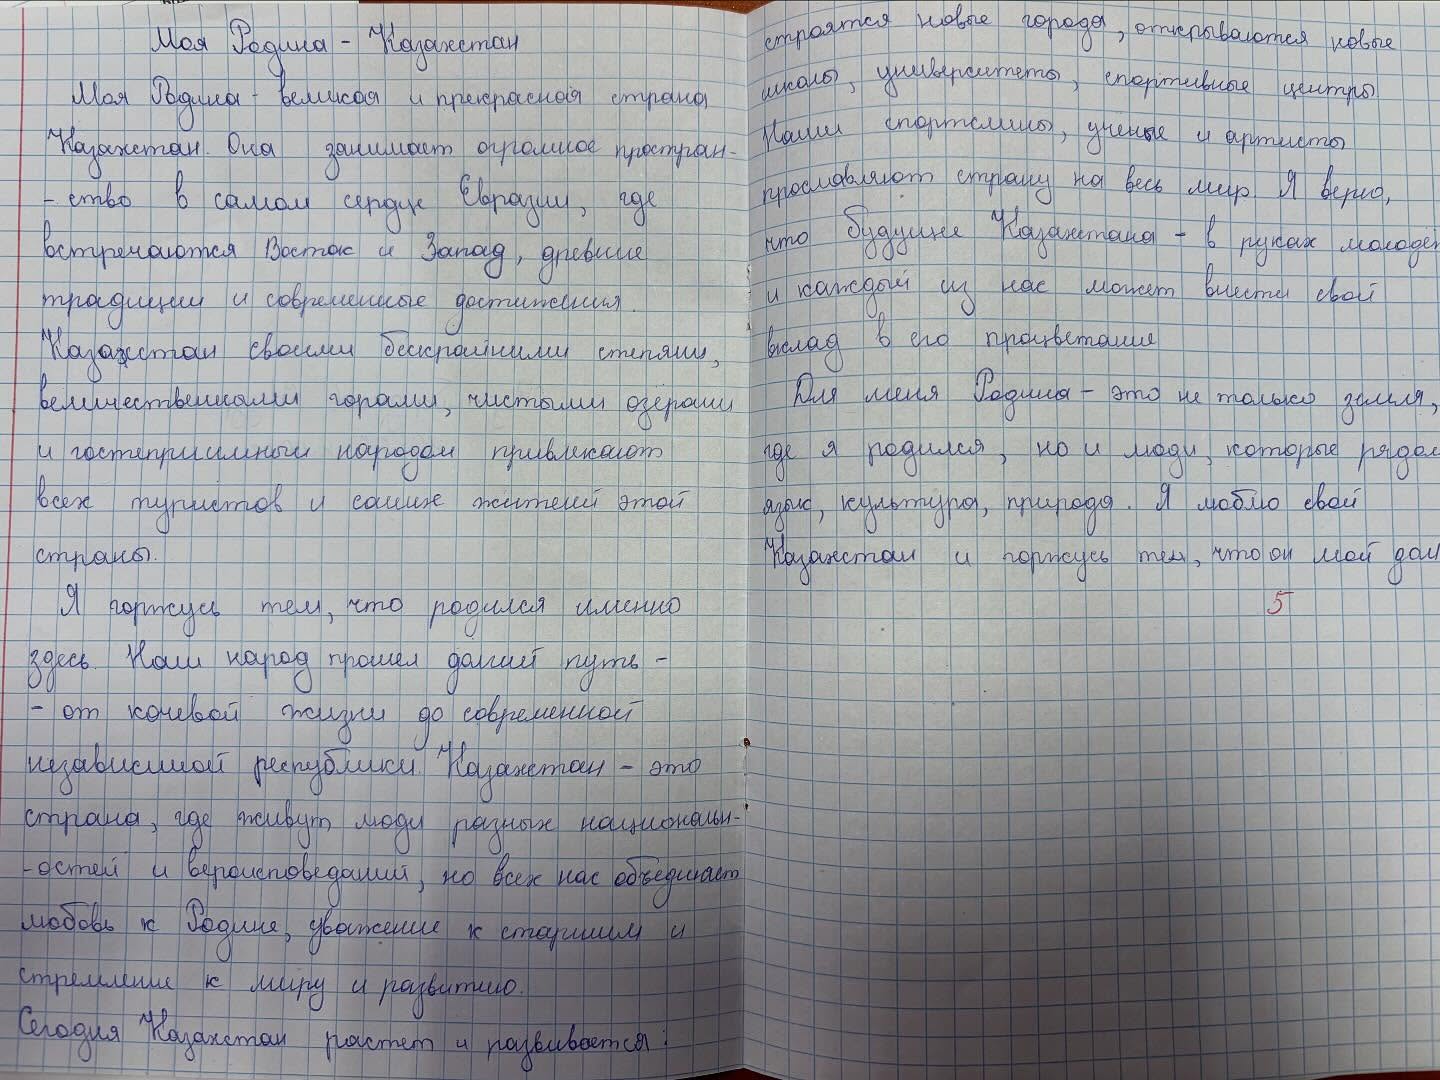 Моя Родина - Казахстан
Моя Родина - великая и прекрасная страна
Казахстан. Она занимает огромное простран-
- ство в самом сердце Евразии, где
встречаются Восток и Запад, древние
традиции и современные достижения.
Казахстан своими бескрайними степями,
величественными горами, чистыми озёрами
и гостеприимным народом привлекают
всех туристов и самих жителей этой
страны.
Я горжусь тем, что родился именно
здесь. Наш народ прошел долгий путь -
- от кочевой жизни до современной
независимой республики. Казахстан - это
страна, где живут люди разных националь-
-остей и вероисповеданий, но всех нас объединяет
любовь к Родине, уважение к старшим и
стремление к миру и развитию.
Сегодня Казахстан растет и развивается:
строятся новые города, открываются новые
школы, университеты, спортивные центры
Наши спортсмины, ученые и артисты
прославляют страну на весь мир. Я верю,
что будущее Казахстана - в руках молодёж
и каждый из нас может внести свой
вклад в его процветание
Для меня Родина - это не только земля,
где я родился, но и люди, которые рядом
язык, культура, природа. Я люблю свой
Казахстан и горжусь тем, что он мой дом
5